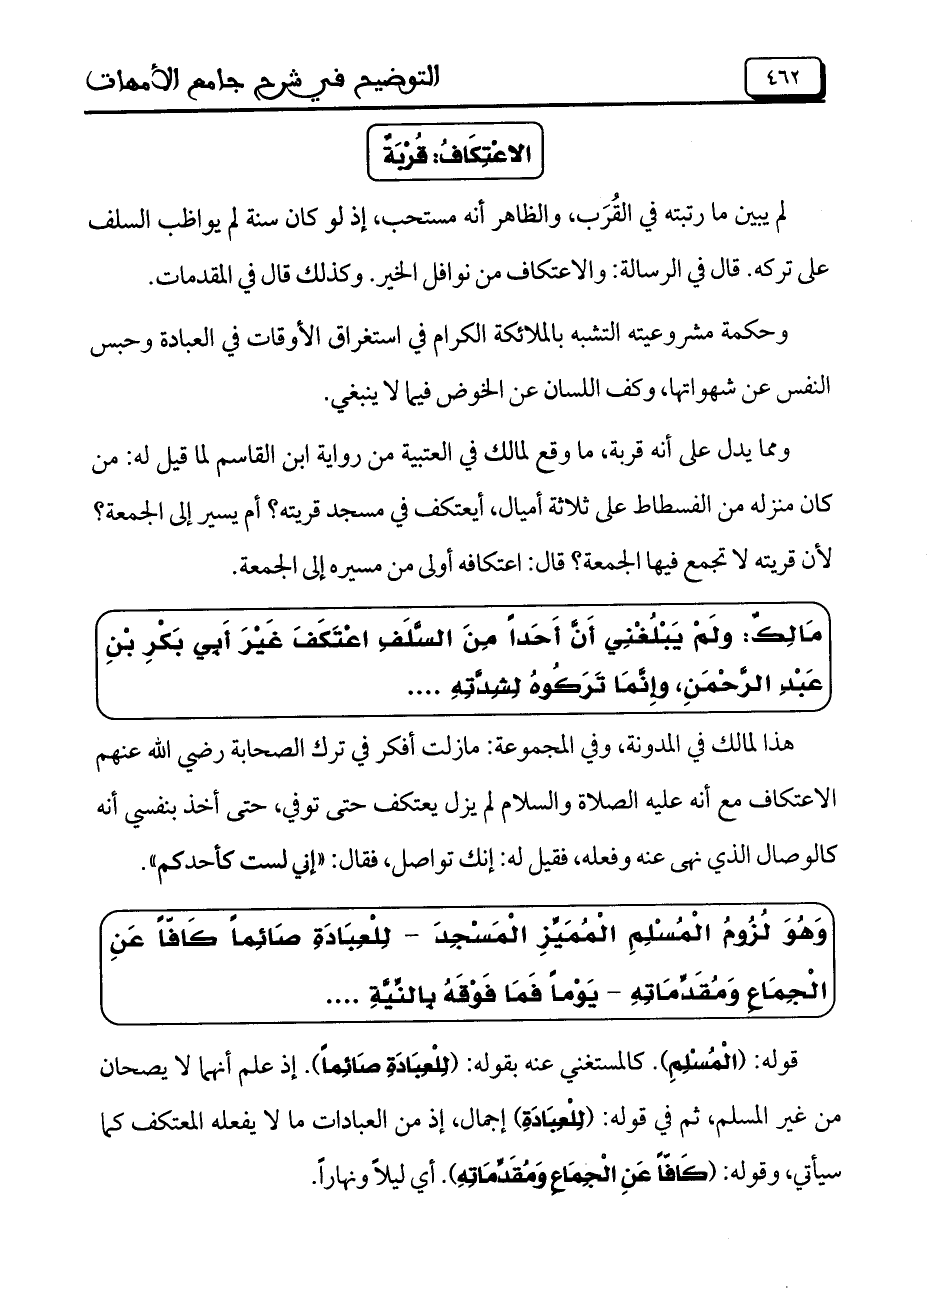 ٤٦٢
التوضيح في شرح جامع الأمهات
الاعْتِكَافُ: قُرْبَةٌ
لم يبين ما رتبته في القُرَب، والظاهر أنه مستحب، إذ لو كان سنة لم يواظب السلف
على تركه. قال في الرسالة: والاعتكاف من نوافل الخير. وكذلك قال في المقدمات.
وحكمة مشروعيته التشبه بالملائكة الكرام في استغراق الأوقات في العبادة وحبس
النفس عن شهواتها، وكف اللسان عن الخوض فيما لا ينبغي.
ومما يدل على أنه قربة، ما وقع لمالك في العتبية من رواية ابن القاسم لما قيل له: من
كان منزله من الفسطاط على ثلاثة أميال، أيعتكف في مسجد قريته؟ أم يسير إلى الجمعة؟
لأن قريته لا تجمع فيها الجمعة؟ قال: اعتكافه أولى من مسيره إلى الجمعة.
مَالِكٌ: ولَمْ يَبْلُغْنِي أَنَّ أَحَداً مِنَ السَّلَفِ اعْتَكَفَ غَيْرَ أَبِي بَكْرِ بْنِ
عَبْدِ الرَّحْمَنِ، وإِنَّمَا تَرَكُوهُ لِشِدَّتِهِ ....
هذا لمالك في المدونة، وفي المجموعة: مازلت أفكر في ترك الصحابة رضي الله عنهم
الاعتكاف مع أنه عليه الصلاة والسلام لم يزل يعتكف حتى توفي، حتى أخذ بنفسي أنه
كالوصال الذي نهى عنه وفعله، فقيل له: إنك تواصل، فقال: «إني لست كأحدكم».
وَهُوَ لُزُومُ الْمُسْلِمِ الْمُمَيِّزِ الْمَسْجِدَ – لِلْعِبَادَةِ صَائِماً كَافّاً عَنِ
الْجِمَاعِ وَمُقَدِّمَاتِهِ – يَوْماً فَمَا فَوْقَهُ بِالنِّيَّةِ ....
قوله: (الْمُسْلِمِ). كالمستغني عنه بقوله: (لِلْعِبَادَةِ صَائِماً). إذ علم أنهما لا يصحان
من غير المسلم، ثم في قوله: (لِلْعِبَادَةِ) إجمال، إذ من العبادات ما لا يفعله المعتكف كما
سيأتي، وقوله: (كَافّاً عَنِ الْجِمَاعِ وَمُقَدِّمَاتِهِ). أي ليلاً ونهاراً.